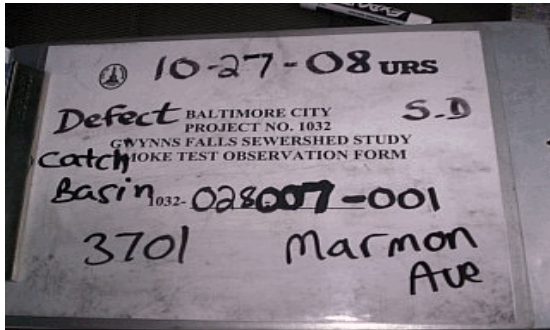 10-27-08 URS
Defect BALTIMORE CITY S.D
PROJECT NO. 1032
GWYNNS FALLS SEWERSHED STUDY
Catch MOKE TEST OBSERVATION FORM
Basin 1032-028007-001
3701 Marmon
Ave